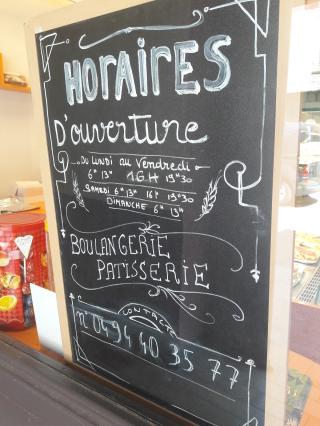 HORAIRES
D'ouverture
Du LUNDI au Vendredi
6ʰ 13ʰ 16H 19ʰ30
SAMEDI 6ʰ 13ʰ 16ʰ 19ʰ30
DIMANCHE 6ʰ 13ʰ
BOULANGERIE
PATISSERIE
CONTACT
n° 0494 40 35 77